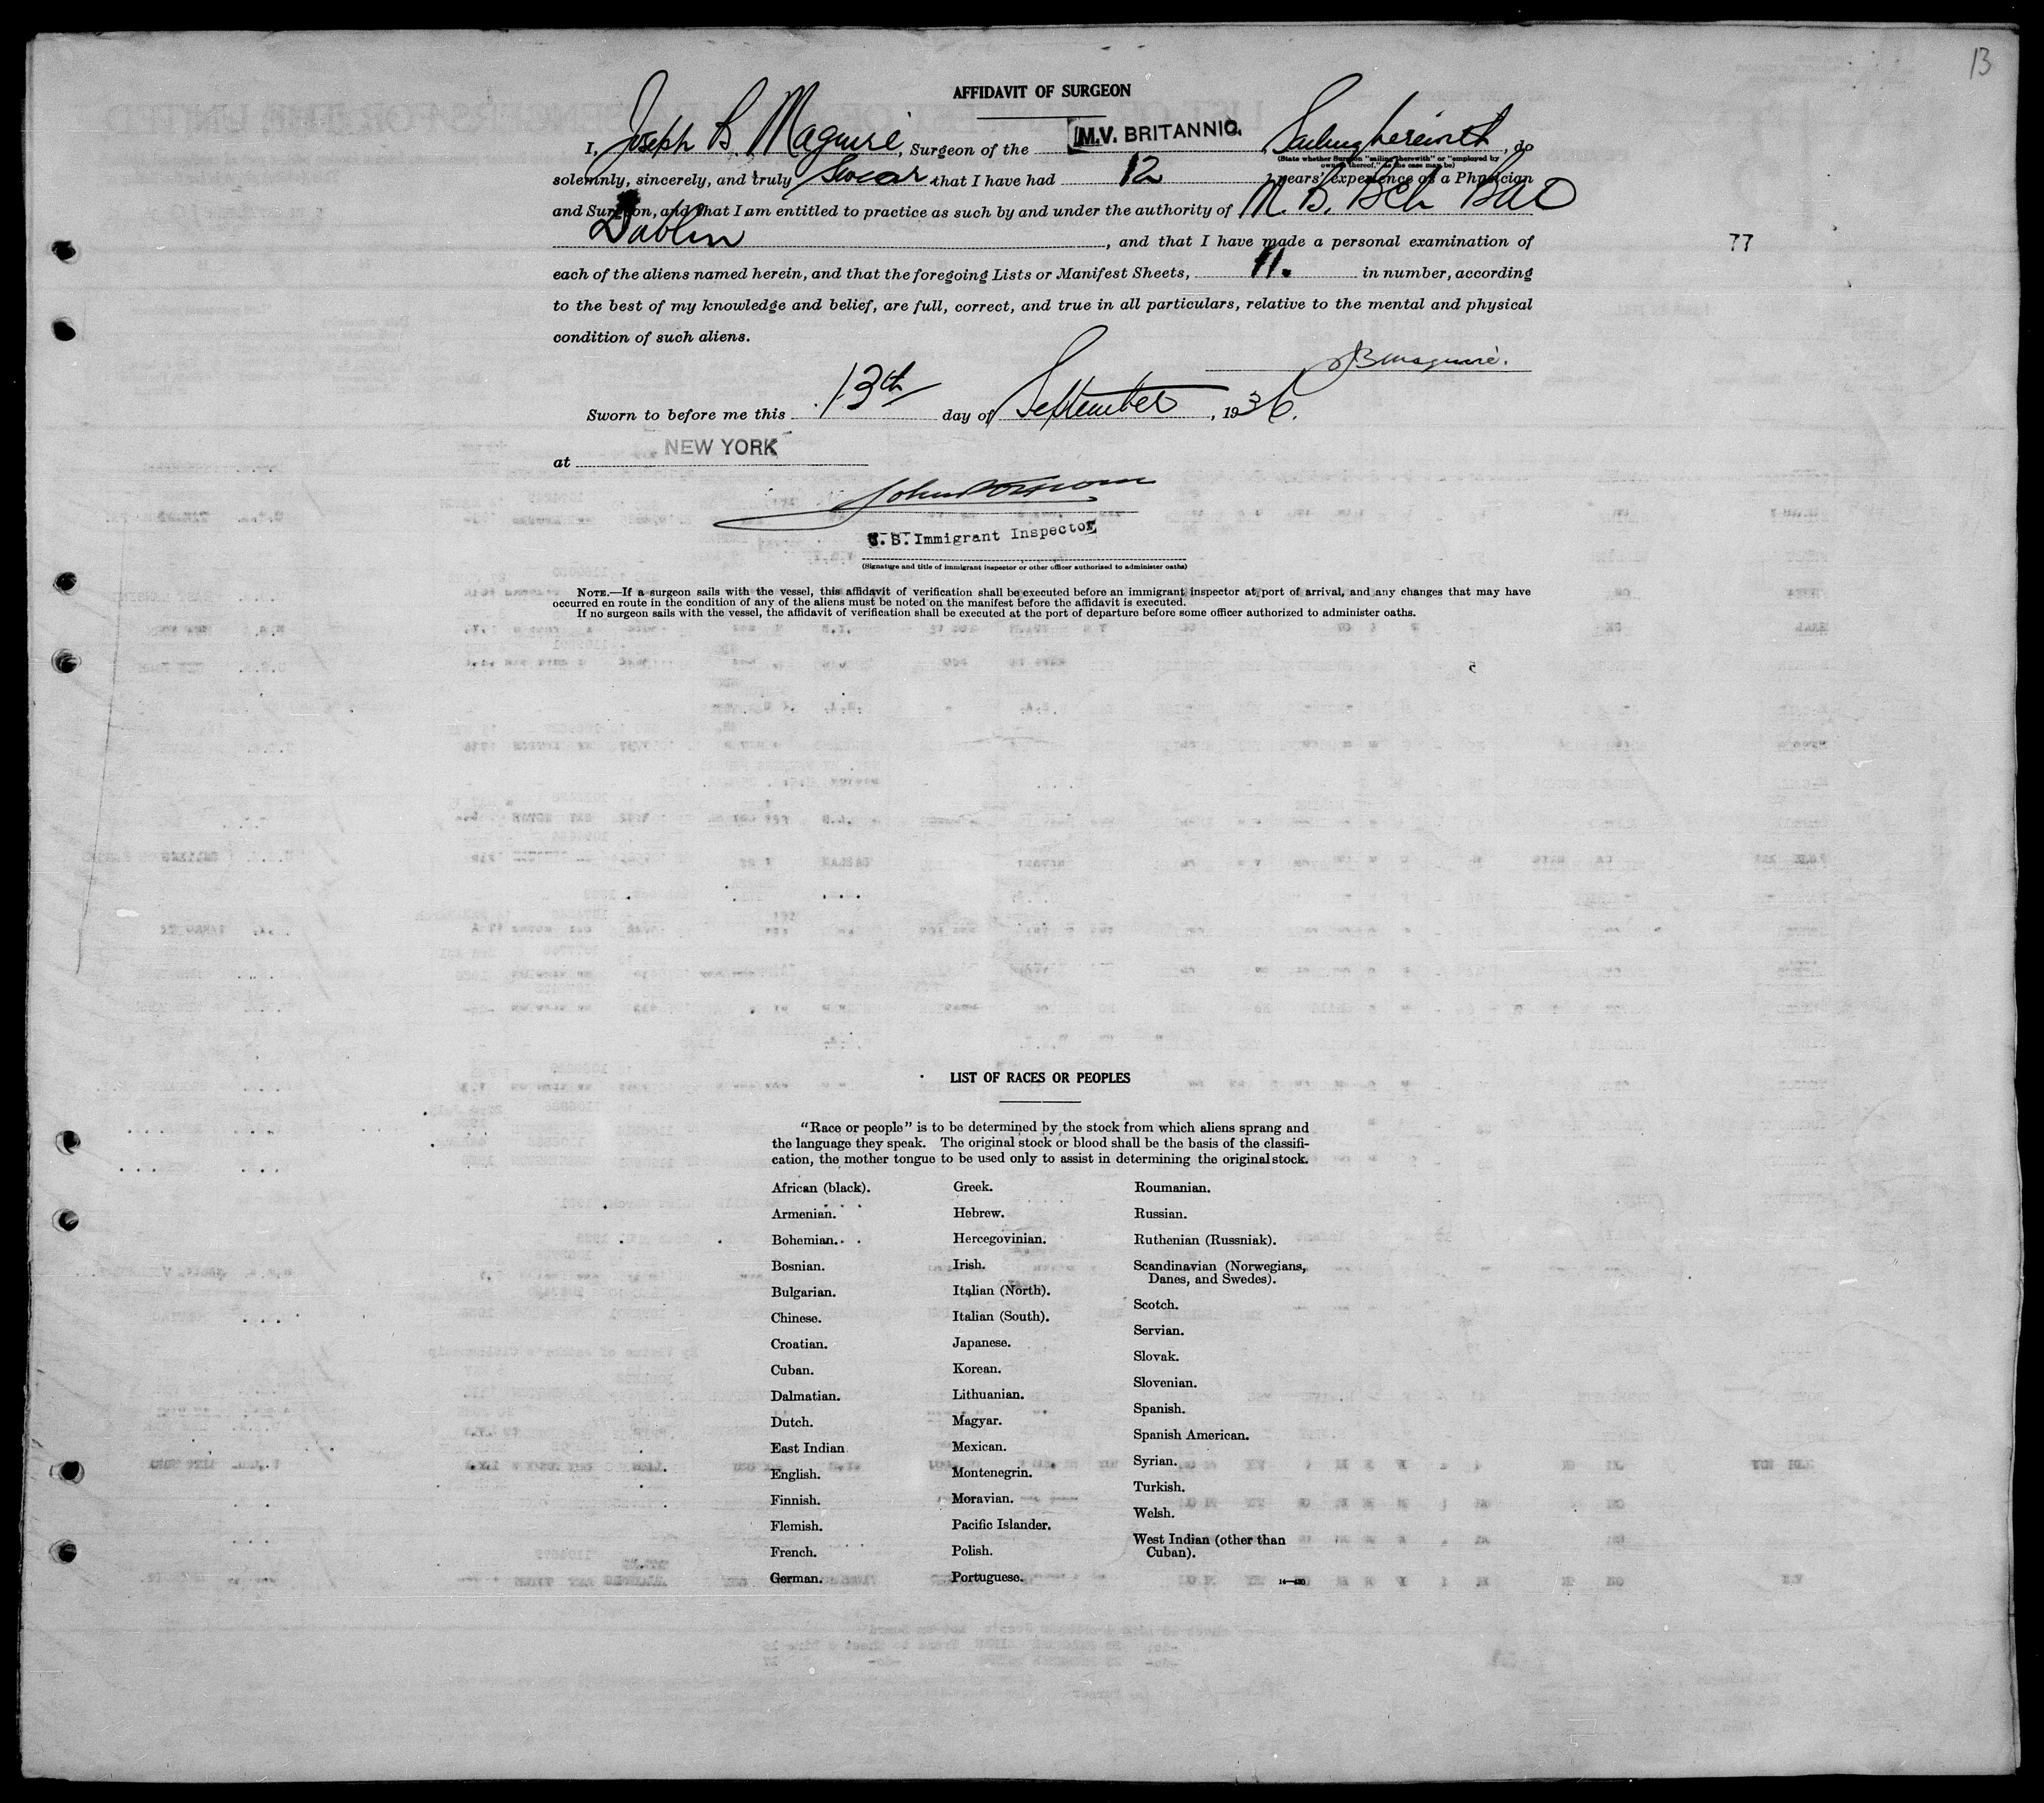 13
AFFIDAVIT OF SURGEON
I, Joseph B. Maguire, Surgeon of the M.V. BRITANNIC. Sailing herewith, do
(State whether Surgeon "sailing therewith" or "employed by owners thereof," as the case may be)
solemnly, sincerely, and truly swear that I have had 12 years' experience as a Physician
and Surgeon, and that I am entitled to practice as such by and under the authority of M. B. Bch Bao
Dublin, and that I have made a personal examination of
77
each of the aliens named herein, and that the foregoing Lists or Manifest Sheets, 11. in number, according
to the best of my knowledge and belief, are full, correct, and true in all particulars, relative to the mental and physical
condition of such aliens.
JBMaguire.
Sworn to before me this 13th day of September, 1936.
at NEW YORK
U. S. Immigrant Inspector
(Signature and title of immigrant inspector or other officer authorized to administer oaths)
NOTE.—If a surgeon sails with the vessel, this affidavit of verification shall be executed before an immigrant inspector at port of arrival, and any changes that may have
occurred en route in the condition of any of the aliens must be noted on the manifest before the affidavit is executed.
If no surgeon sails with the vessel, the affidavit of verification shall be executed at the port of departure before some officer authorized to administer oaths.
LIST OF RACES OR PEOPLES
"Race or people" is to be determined by the stock from which aliens sprang and
the language they speak. The original stock or blood shall be the basis of the classifi-
cation, the mother tongue to be used only to assist in determining the original stock.
African (black).
Armenian.
Bohemian.
Bosnian.
Bulgarian.
Chinese.
Croatian.
Cuban.
Dalmatian.
Dutch.
East Indian
English.
Finnish.
Flemish.
French.
German.
Greek.
Hebrew.
Hercegovinian.
Irish.
Italian (North).
Italian (South).
Japanese.
Korean.
Lithuanian.
Magyar.
Mexican.
Montenegrin.
Moravian.
Pacific Islander.
Polish.
Portuguese.
Roumanian.
Russian.
Ruthenian (Russniak).
Scandinavian (Norwegians,
Danes, and Swedes).
Scotch.
Servian.
Slovak.
Slovenian.
Spanish.
Spanish American.
Syrian.
Turkish.
Welsh.
West Indian (other than
Cuban).